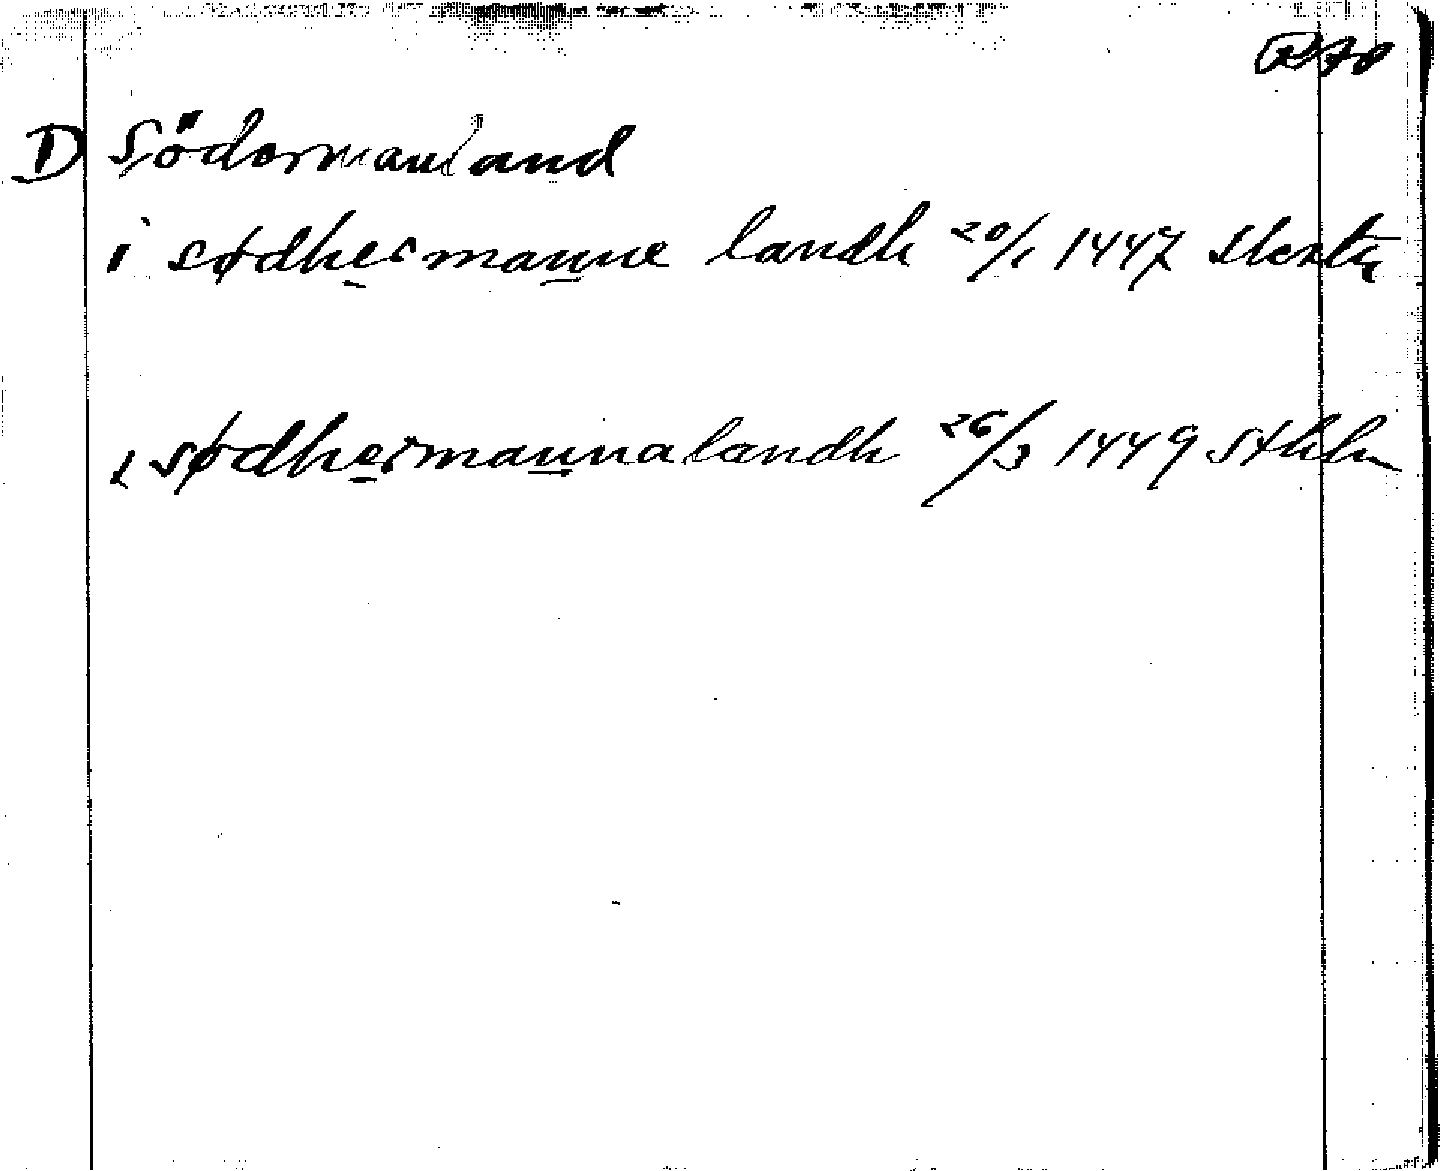 RAO
D Södermanland
i sødhermanne landh 20/1 1447
i sødhermannalandh 26/3 1449 Sthlm